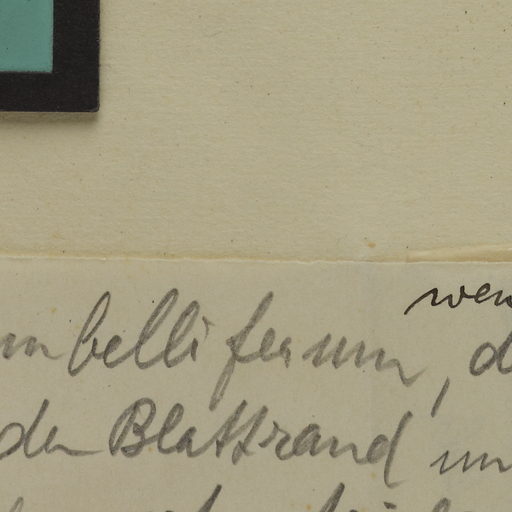 wen
mbelliferum, d
der Blattrand un